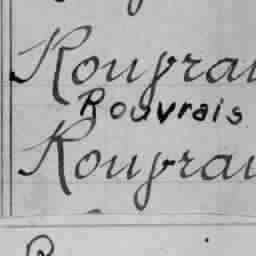 Rouvrai
Rouvrais
Rouvrai